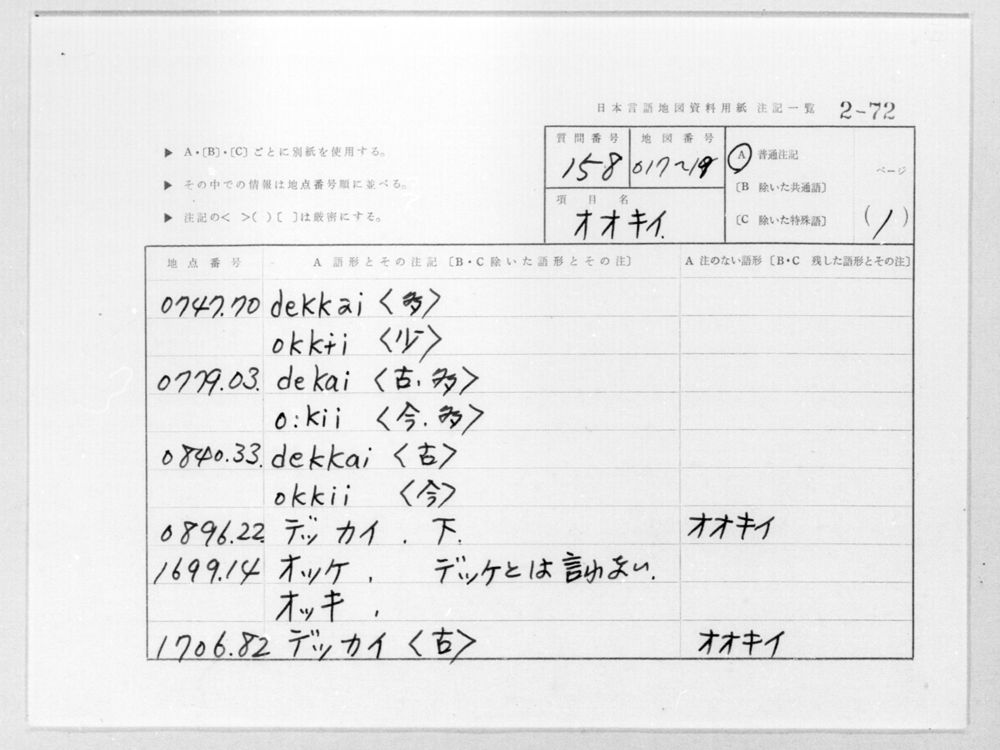 日本言語地図資料用紙 注記一覧 2-72
▶ A・〔B〕・〔C〕ごとに別紙を使用する。
▶ その中での情報は地点番号順に並べる。
▶ 注記の< >( )〔 〕は厳密にする。
質問番号 地図番号
158 017~19
項目名
オオキイ.
A 普通注記
〔B 除いた共通語〕
〔C 除いた特殊語〕
ページ
(1)
地点番号 A 語形とその注記〔B・C除いた語形とその注〕 A 注のない語形〔B・C 残した語形とその注〕
0747.70 dekkai〈多〉
okkii〈少〉
0779.03. dekai〈古.多〉
o:kii〈今.多〉
0840.33. dekkai〈古〉
okkii〈今〉
0896.22 デッカイ . 下. オオキイ
1699.14 オッケ , デッケとは言わない.
オッキ ,
1706.82 デッカイ〈古〉 オオキイ